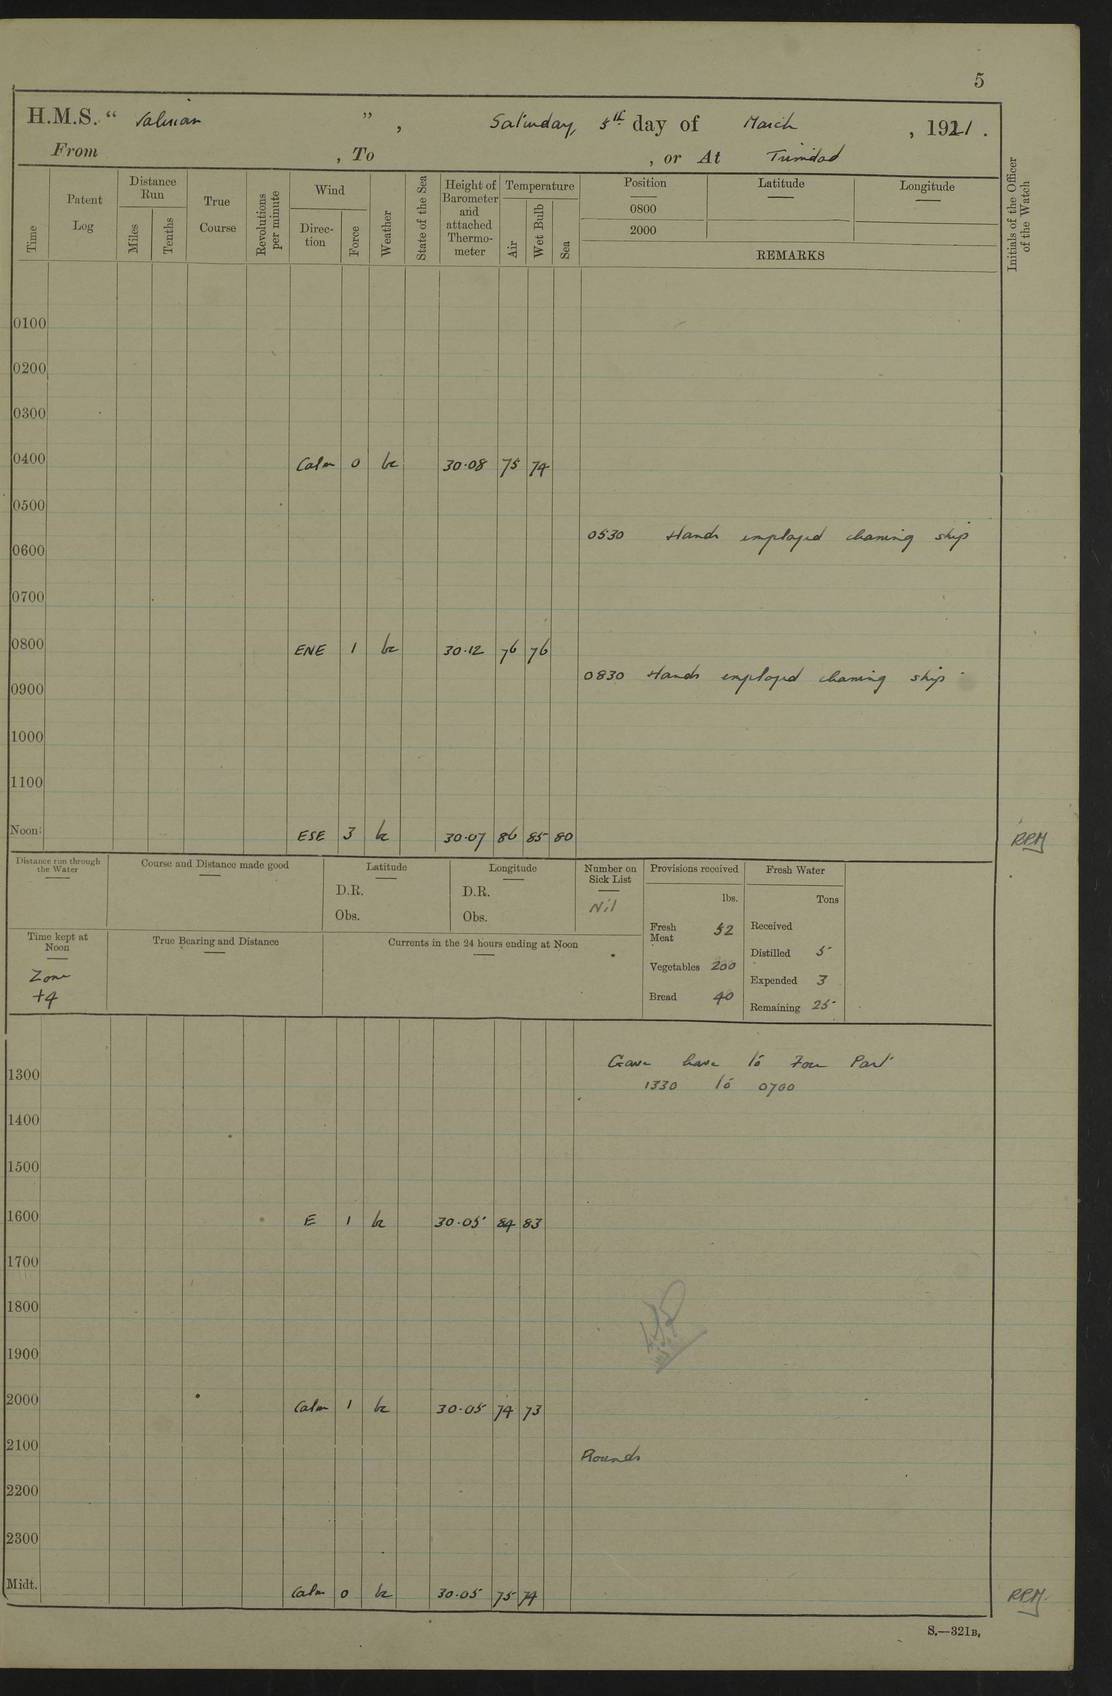 5
H.M.S. “ Valerian ” , Saturday, 5th day of March , 1921 .
From , To , or At Trinidad
Time
Patent Log
Distance Run
Miles
Tenths
True Course
Revolutions per minute
Wind
Direc- tion
Force
Weather
State of the Sea
Height of Barometer and attached Thermo- meter
Temperature
Air
Wet Bulb
Sea
Position Latitude Longitude
0800
2000
REMARKS
Initials of the Officer of the Watch
0100
0200
0300
0400 Calm 0 bc 30·08 75 74
0500
0530 Hands employed cleaning ship
0600
0700
0800 ENE 1 bc 30·12 76 76
0830 Hands employed cleaning ship
0900
1000
1100
Noon: ESE 3 bc 30·07 86 85 80 RRM
Distance run through the Water
Course and Distance made good
Latitude
D.R.
Obs.
Longitude
D.R.
Obs.
Number on Sick List
Nil
Provisions received
lbs.
Fresh Meat 52
Vegetables 200
Bread 40
Fresh Water
Tons
Received
Distilled 5
Expended 3
Remaining 25
Time kept at Noon
Zone
+4
True Bearing and Distance
Currents in the 24 hours ending at Noon
Gave leave to Fore Part
1300 1330 to 0700
1400
1500
1600 E 1 bc 30·05 84 83
1700
1800
1900
2000 Calm 1 bc 30·05 74 73
2100 Rounds
2200
2300
Midt. Calm 0 bc 30·05 75 74 RRM.
S.—321B.